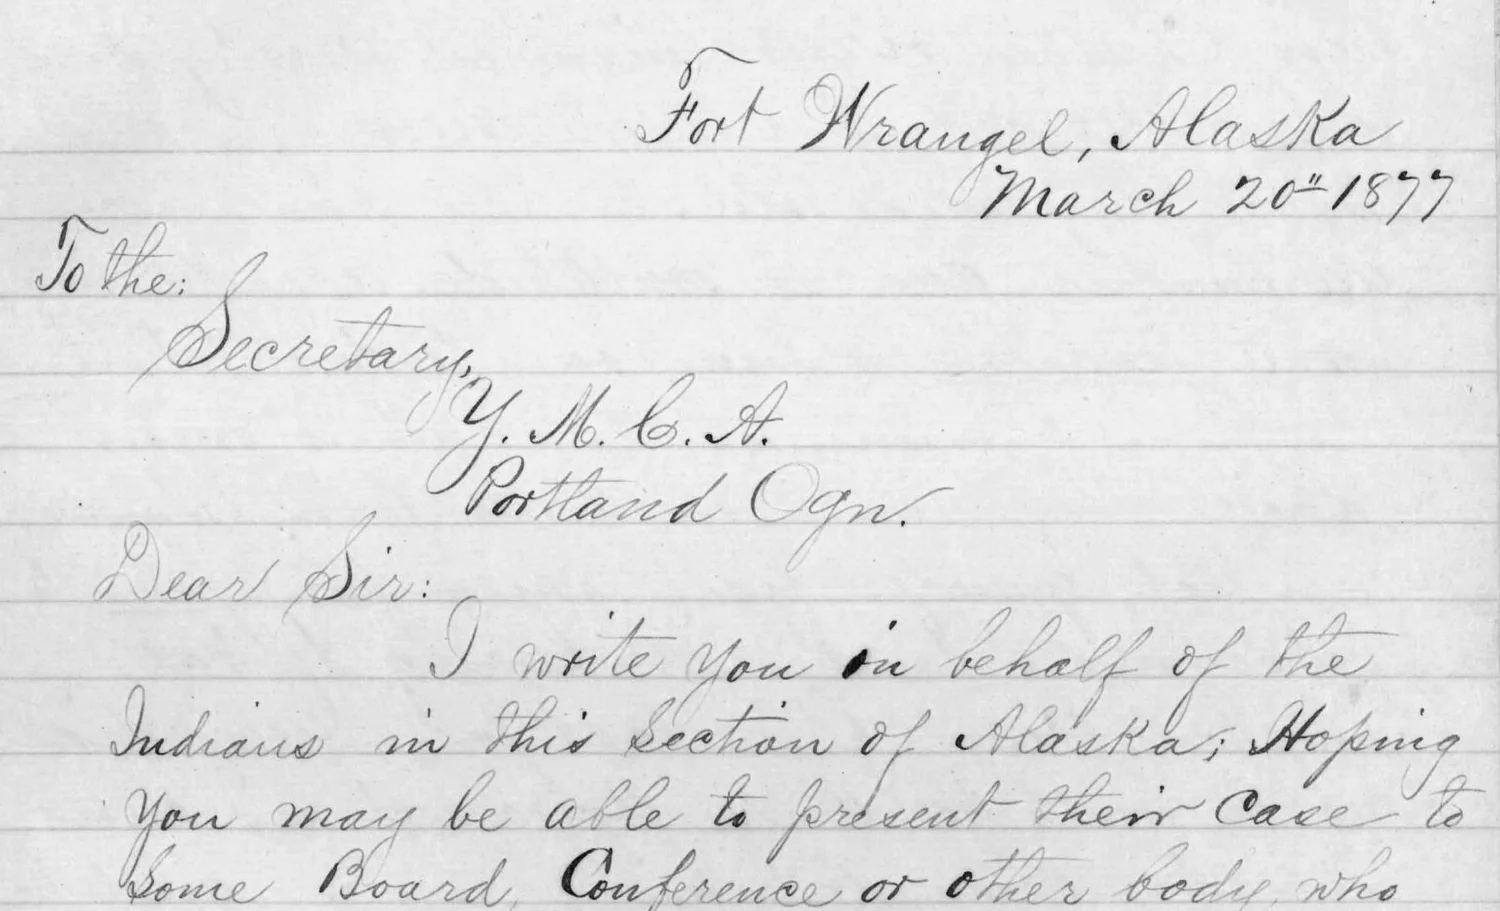 Fort Wrangel, Alaska
March 20" 1877
To the:
Secretary,
Y. M. C. A.
Portland Ogn.
Dear Sir:
I write you in behalf of the
Indians in this Section of Alaska; Hoping
you may be able to present their Case to
Some Board, Conference or other body, who